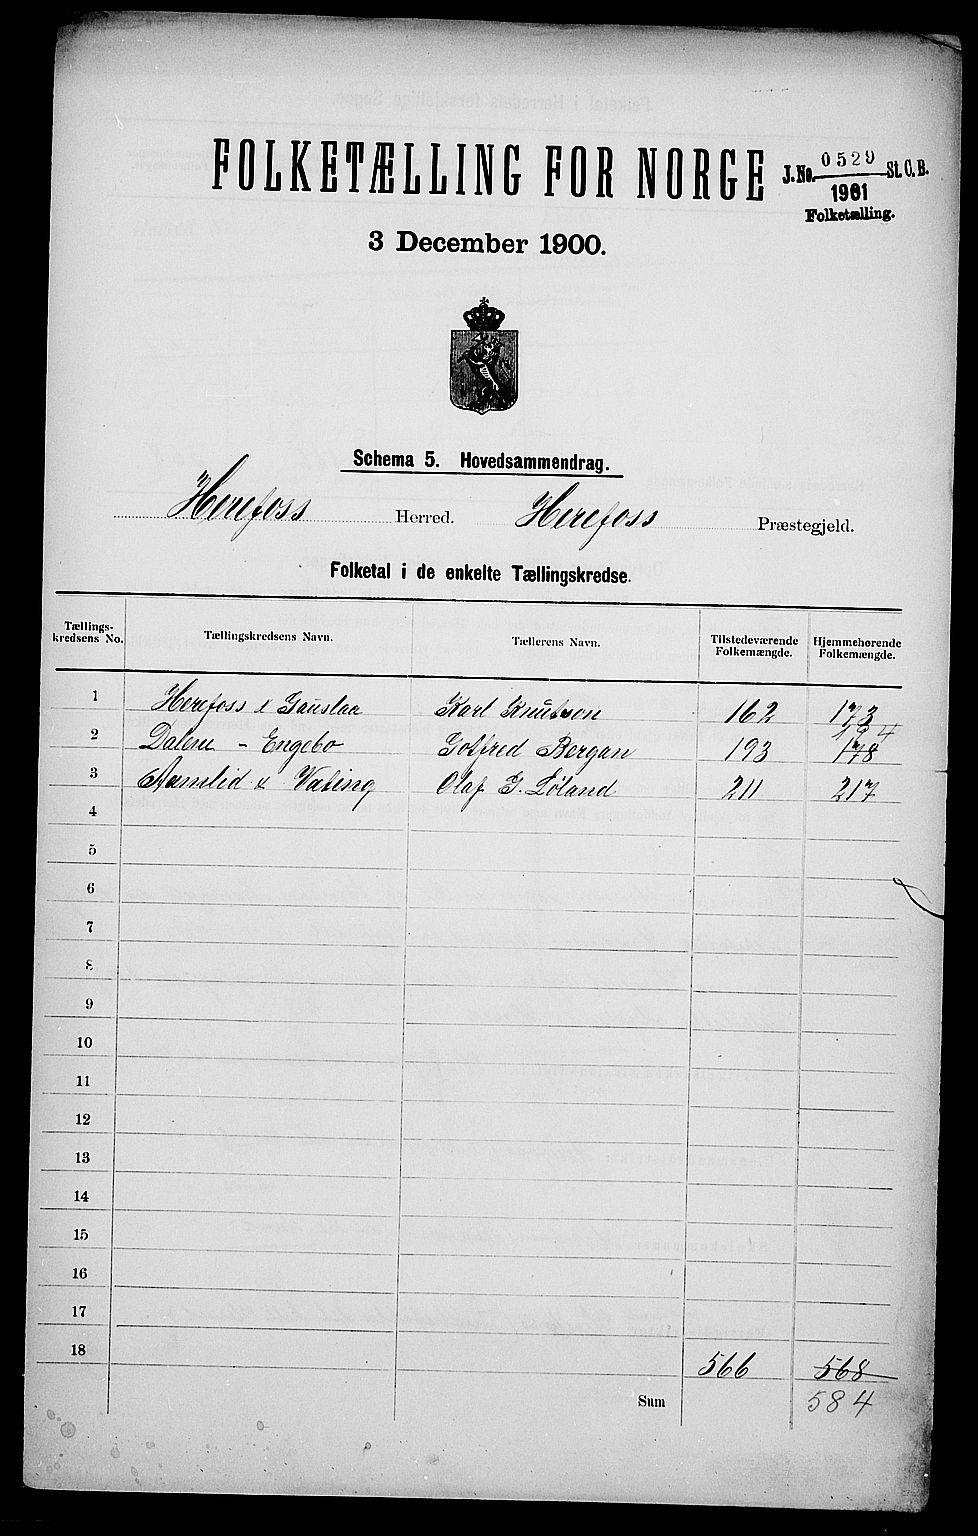 FOLKETÆLLING FOR NORGE
J.No. 0529 St.C.B.
1901
Folketælling.
3 December 1900.
Schema 5. Hovedsammendrag.
Herefoss Herred. Herefoss Præstegjeld.
Folketal i de enkelte Tællingskredse.
Tællings-kredsens No. Tællingskredsens Navn. Tællerens Navn. Tilstedeværende Folkemængde. Hjemmehørende Folkemængde.
1 Herefoss & Gauslaa Karl Knutson 162 173
2 Dalene - Engebo Gotfred Bergan 193 178 194
3 Aamlid & Vating Olaf G. Løland 211 217
4
5
6
7
8
9
10
11
12
13
14
15
16
17
18
566 568
Sum 584